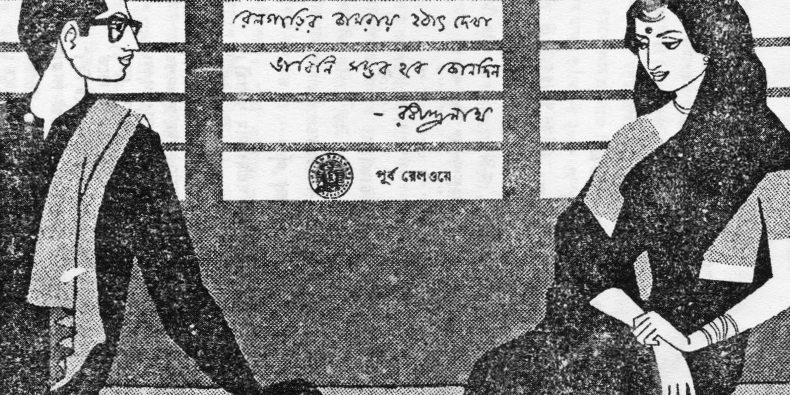 রেলগাড়ির কামরায় হঠাৎ দেখা
ভাবিনি সম্ভব হবে কোনদিন
- রবীন্দ্রনাথ
পূর্ব রেলওয়ে